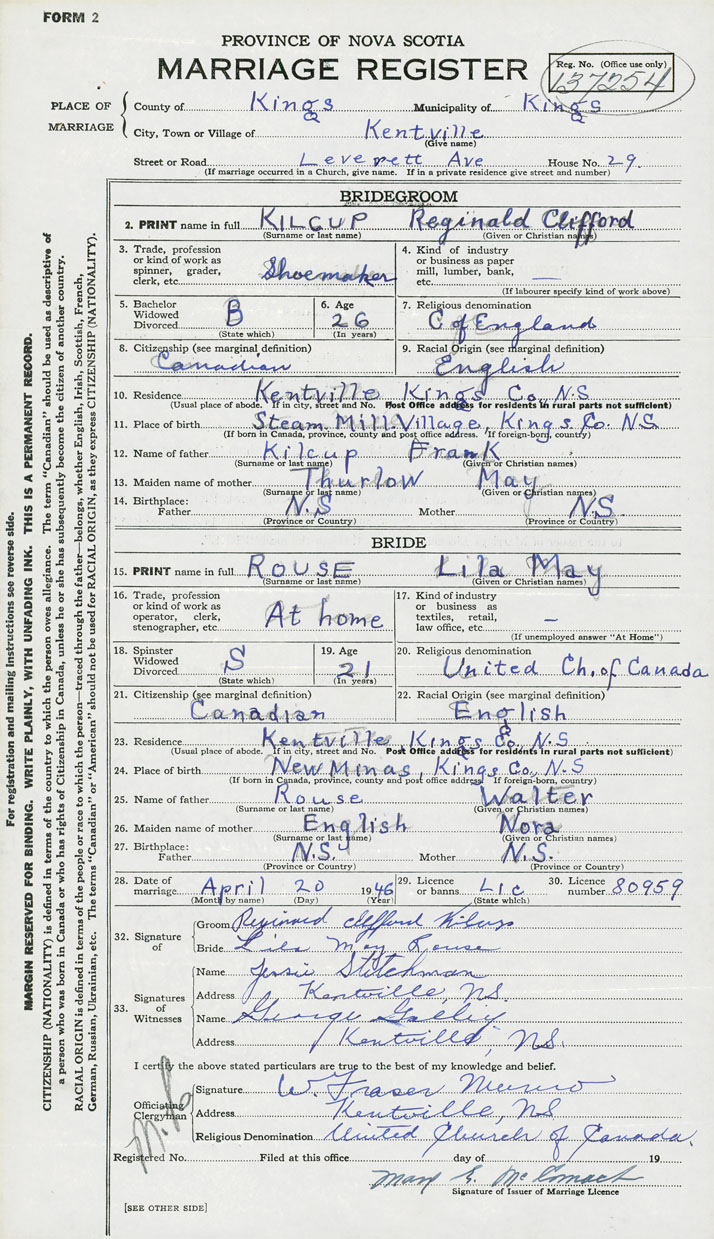 FORM 2
PROVINCE OF NOVA SCOTIA
MARRIAGE REGISTER
Reg. No. (Office use only)
137254
PLACE OF MARRIAGE
County of Kings Municipality of Kings
City, Town or Village of Kentville
(Give name)
Street or Road Leverett Ave House No. 29.
(If marriage occurred in a Church, give name. If in a private residence give street and number)
BRIDEGROOM
2. PRINT name in full KILCUP Reginald Clifford
(Surname or last name) (Given or Christian names)
3. Trade, profession or kind of work as spinner, grader, clerk, etc. Shoemaker
4. Kind of industry or business as paper mill, lumber, bank, etc. —
(If labourer specify kind of work above)
5. Bachelor Widowed Divorced B
(State which)
6. Age 26
(In years)
7. Religious denomination
C of England
8. Citizenship (see marginal definition)
Canadian
9. Racial Origin (see marginal definition)
English
10. Residence Kentville Kings Co, N.S
(Usual place of abode. If in city, street and No. Post Office address for residents in rural parts not sufficient)
11. Place of birth Steam Mill Village, Kings Co. N.S.
(If born in Canada, province, county and post office address. If foreign-born, country)
12. Name of father Kilcup Frank
(Surname or last name) (Given or Christian names)
13. Maiden name of mother Thurlow May
(Surname or last name) (Given or Christian names)
14. Birthplace: Father N.S Mother N.S.
(Province or Country) (Province or Country)
BRIDE
15. PRINT name in full ROUSE Lila May
(Surname or last name) (Given or Christian names)
16. Trade, profession or kind of work as operator, clerk, stenographer, etc. At home
17. Kind of industry or business as textiles, retail, law office, etc. —
(If unemployed answer "At Home")
18. Spinster Widowed Divorced S
(State which)
19. Age 21
(In years)
20. Religious denomination
United Ch. of Canada
21. Citizenship (see marginal definition)
Canadian
22. Racial Origin (see marginal definition)
English
23. Residence Kentville, Kings Co, N.S
(Usual place of abode. If in city, street and No. Post Office address for residents in rural parts not sufficient)
24. Place of birth New Minas, Kings Co., N.S
(If born in Canada, province, county and post office address. If foreign-born, country)
25. Name of father Rouse Walter
(Surname or last name) (Given or Christian names)
26. Maiden name of mother English Nora
(Surname or last name) (Given or Christian names)
27. Birthplace: Father N.S. Mother N.S.
(Province or Country) (Province or Country)
28. Date of marriage April 20 1946
(Month by name) (Day) (Year)
29. Licence or banns Lic
(State which)
30. Licence number 80959
32. Signature of
Groom Reginald Clifford Kilcup
Bride Lila May Rouse
33. Signatures of Witnesses
Name Jessie Stitchman
Address Kentville, N.S.
Name George
Address Kentville, N.S.
I certify the above stated particulars are true to the best of my knowledge and belief.
Officiating Clergyman
Signature W. Fraser Munro
Address Kentville, N.S
Religious Denomination United Church of Canada.
Registered No. Filed at this office day of 19
Mary E. McCormack
Signature of Issuer of Marriage Licence
[SEE OTHER SIDE]
For registration and mailing instructions see reverse side.
MARGIN RESERVED FOR BINDING. WRITE PLAINLY, WITH UNFADING INK. THIS IS A PERMANENT RECORD.
CITIZENSHIP (NATIONALITY) is defined in terms of the country to which the person owes allegiance. The term "Canadian" should be used as descriptive of
a person who was born in Canada or who has rights of Citizenship in Canada, unless he or she has subsequently become the citizen of another country.
RACIAL ORIGIN is defined in terms of the people or race to which the person—traced through the father—belongs, whether English, Irish, Scottish, French,
German, Russian, Ukrainian, etc. The terms "Canadian" or "American" should not be used for RACIAL ORIGIN, as they express CITIZENSHIP (NATIONALITY).